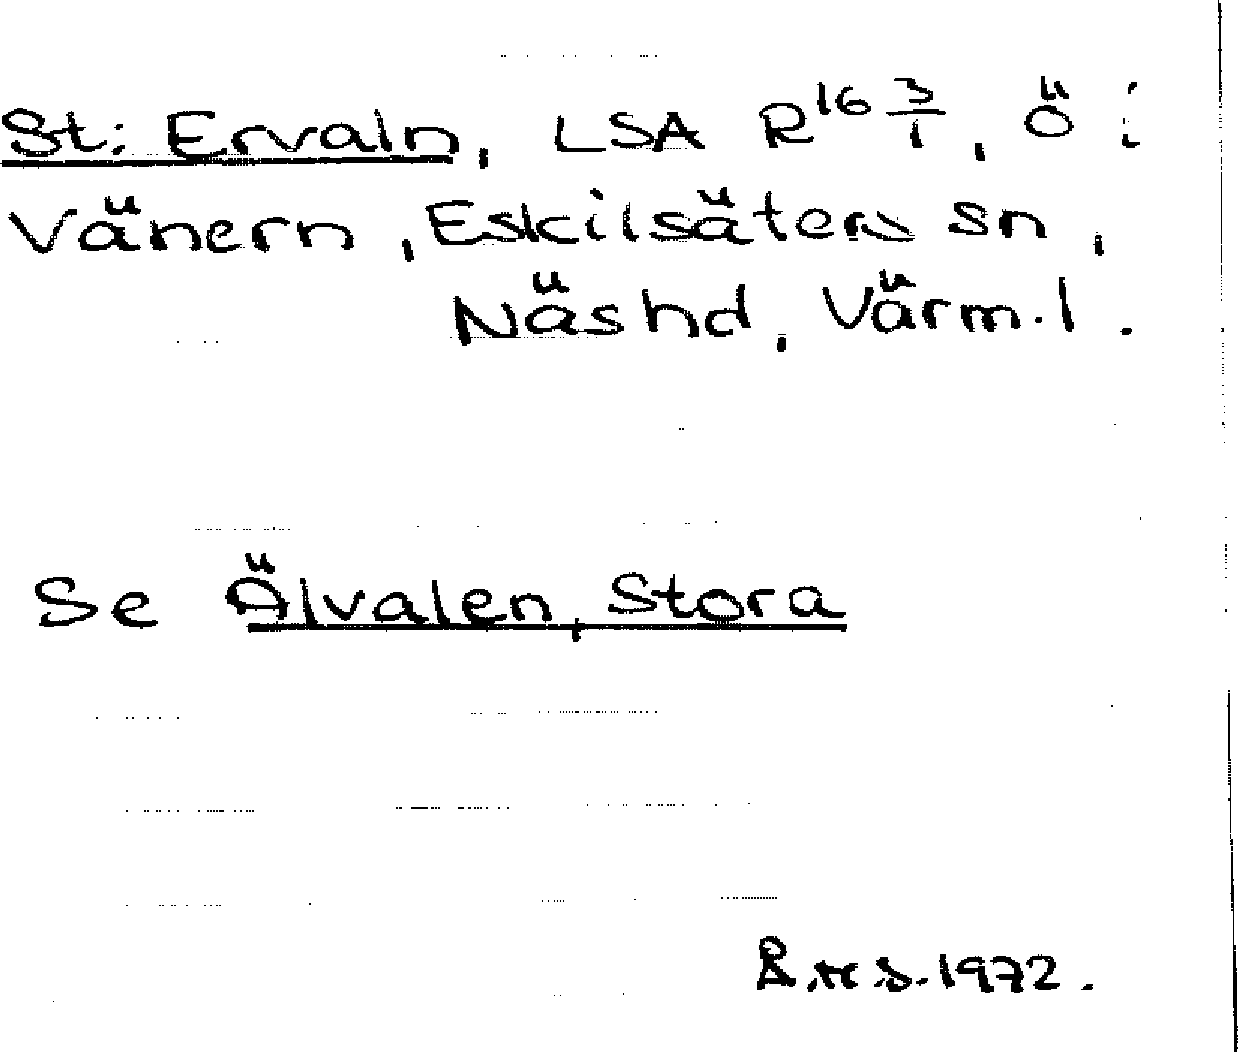 St: Ervaln, LSA R16 3/1, ö i
Vänern, Eskilsäters sn,
Näs hd, Värml.
Se Älvalen, Stora
1972.